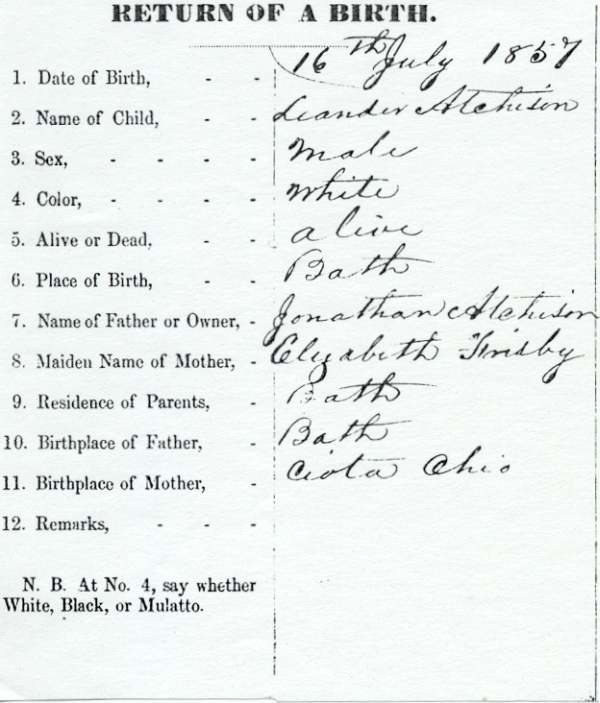 RETURN OF A BIRTH.
1. Date of Birth, - - 16th July 1857
2. Name of Child, - - Leander Atchison
3. Sex, - - - - Male
4. Color, - - - - White
5. Alive or Dead, - - alive
6. Place of Birth, - - Bath
7. Name of Father or Owner, - Jonathan Atchison
8. Maiden Name of Mother, - Elizabeth Frisby
9. Residence of Parents, - Bath
10. Birthplace of Father, - Bath
11. Birthplace of Mother, - Ciota Ohio
12. Remarks, - - -
N. B. At No. 4, say whether
White, Black, or Mulatto.